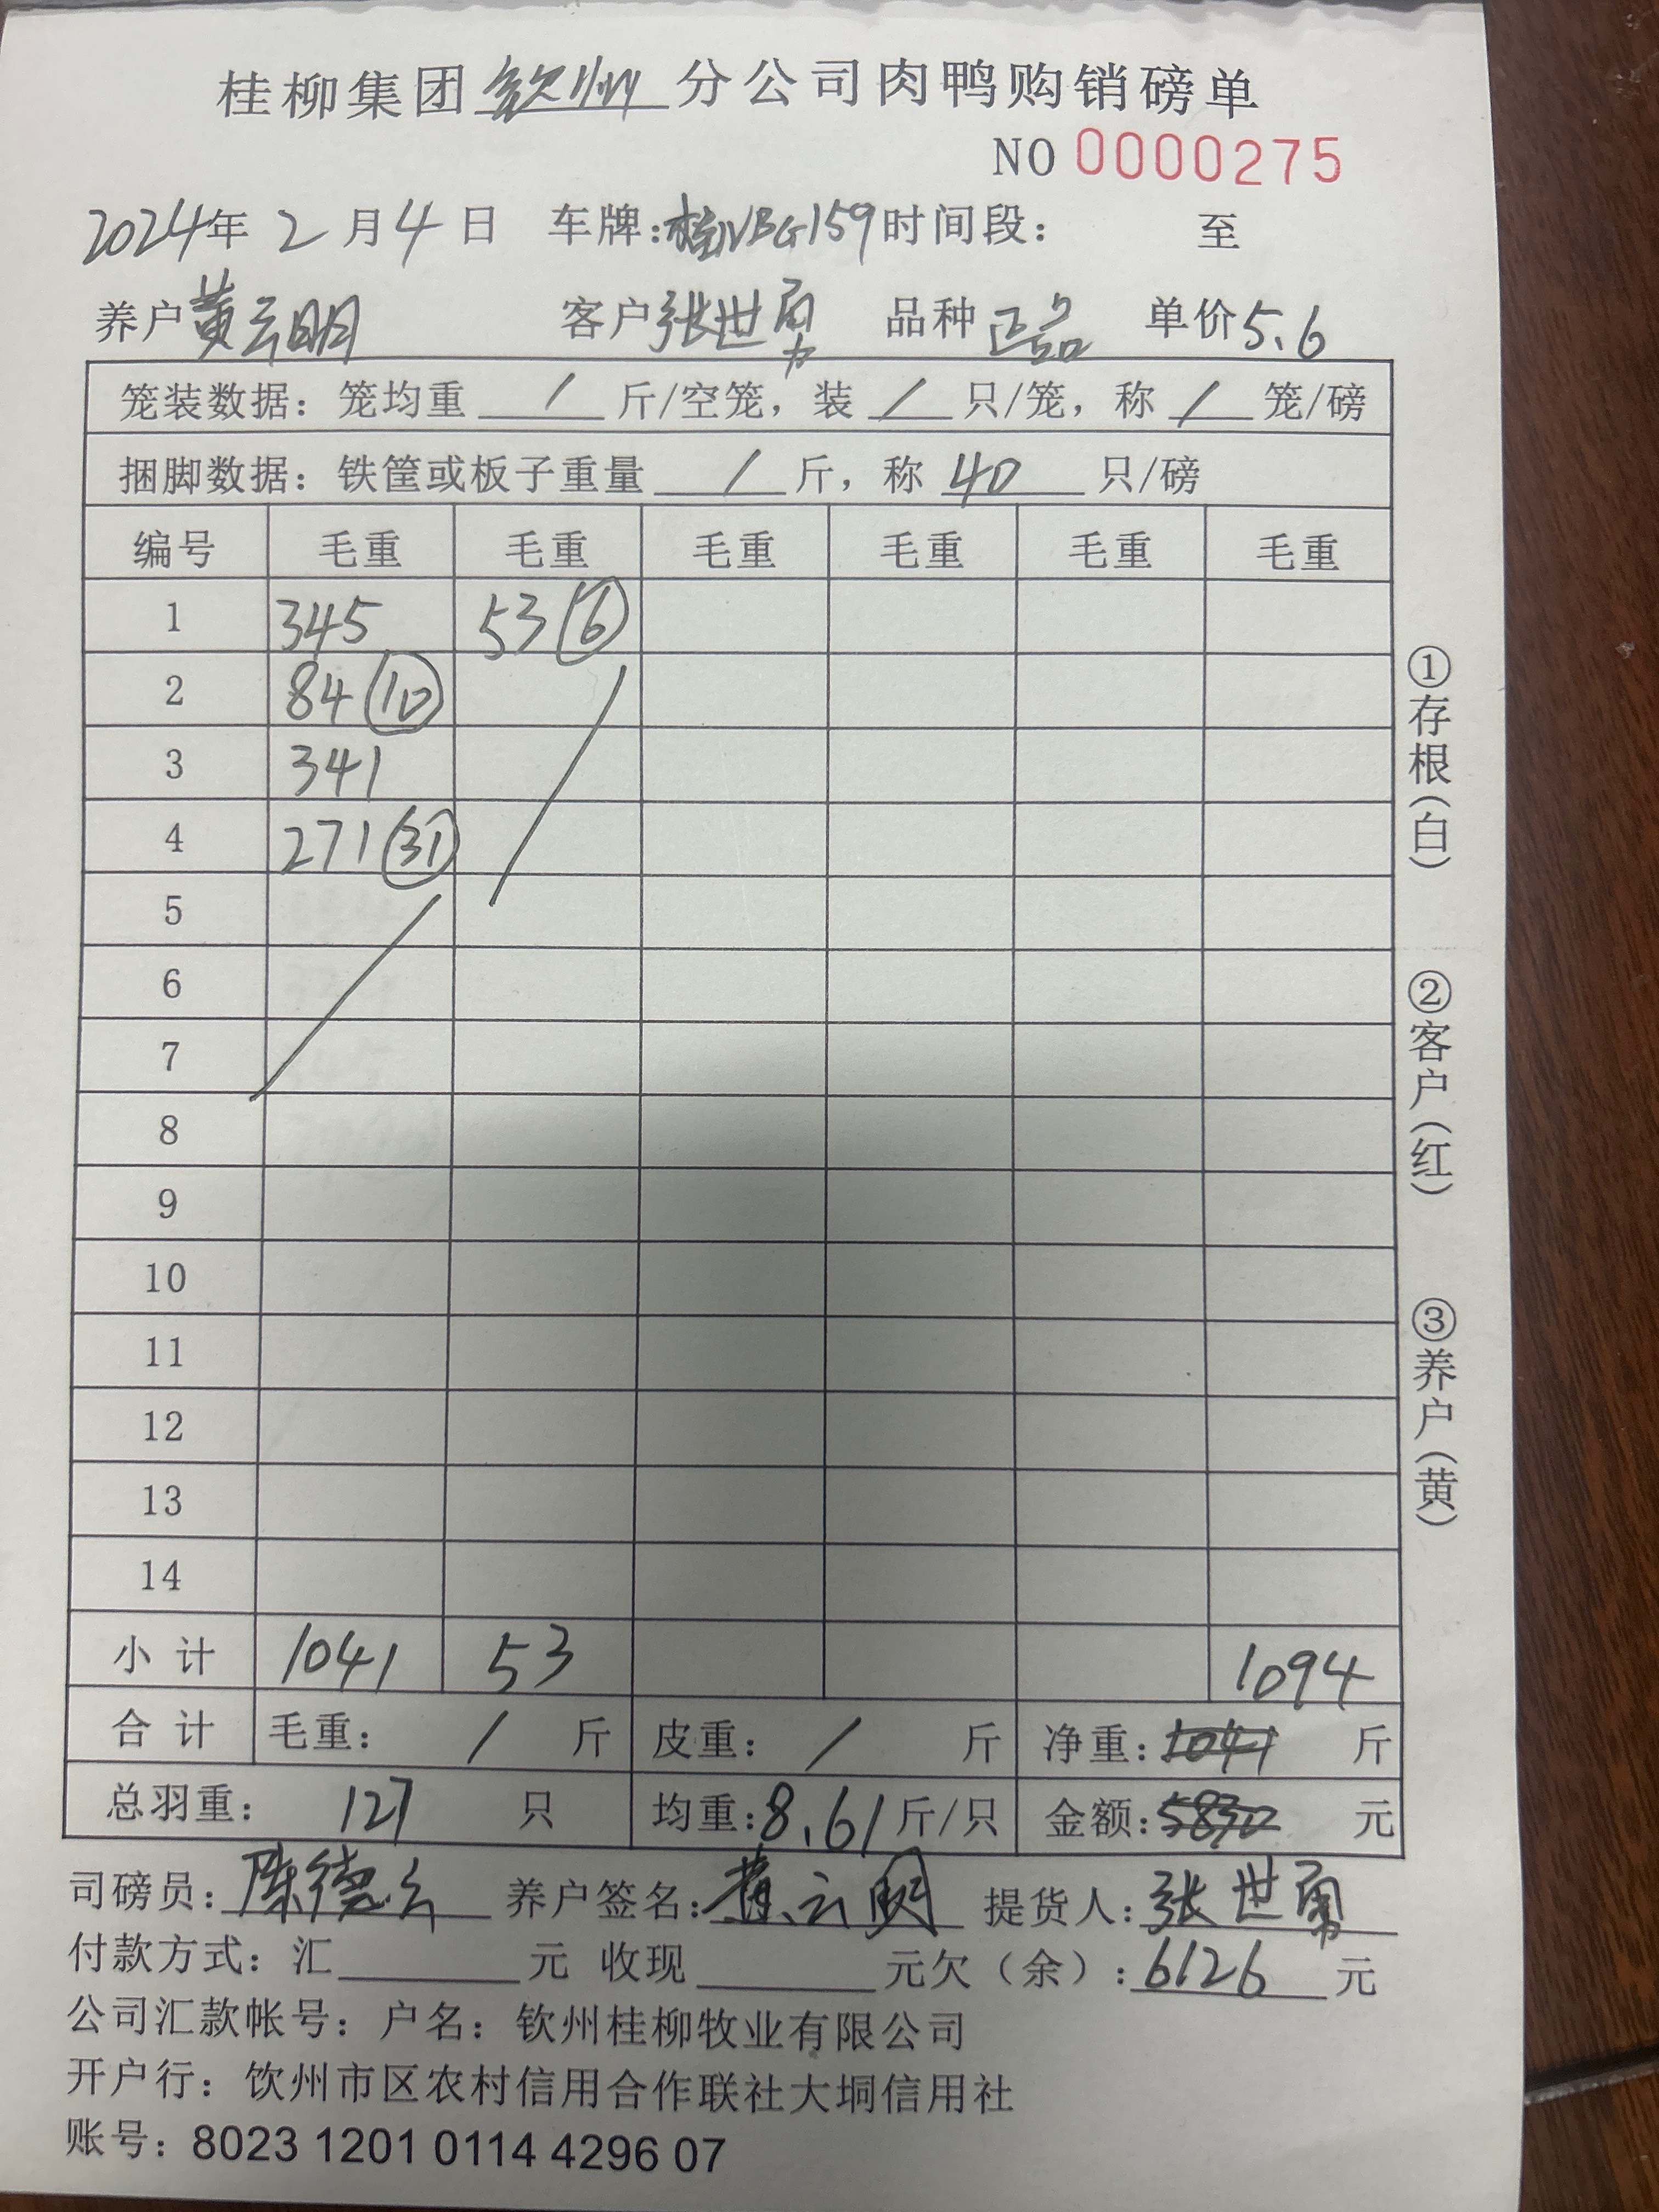 桂柳集团钦州分公司肉鸭购销磅单
NO 0000275
2024年2月4日 车牌:桂NBG159时间段: 至
养户黄云明 客户张世勇 品种正品 单价5.6
笼装数据: 笼均重 / 斤/空笼, 装 / 只/笼, 称 / 笼/磅
捆脚数据: 铁筐或板子重量 / 斤, 称 40 只/磅
编号 毛重 毛重 毛重 毛重 毛重 毛重
1 345 53 ⑥
2 84 ⑩
3 341
4 271 ㉛
5
6
7
8
9
10
11
12
13
14
小计 1041 53 1094
合计 毛重: / 斤 皮重: / 斤 净重: 1041 斤
总羽重: 127 只 均重:8.61斤/只 金额:5830 元
司磅员:陈德云 养户签名:黄云明 提货人:张世勇
付款方式: 汇 元 收现 元欠(余):6126元
公司汇款帐号: 户名: 钦州桂柳牧业有限公司
开户行: 钦州市区农村信用合作联社大垌信用社
账号: 8023 1201 0114 4296 07
①存根(白)
②客户(红)
③养户(黄)